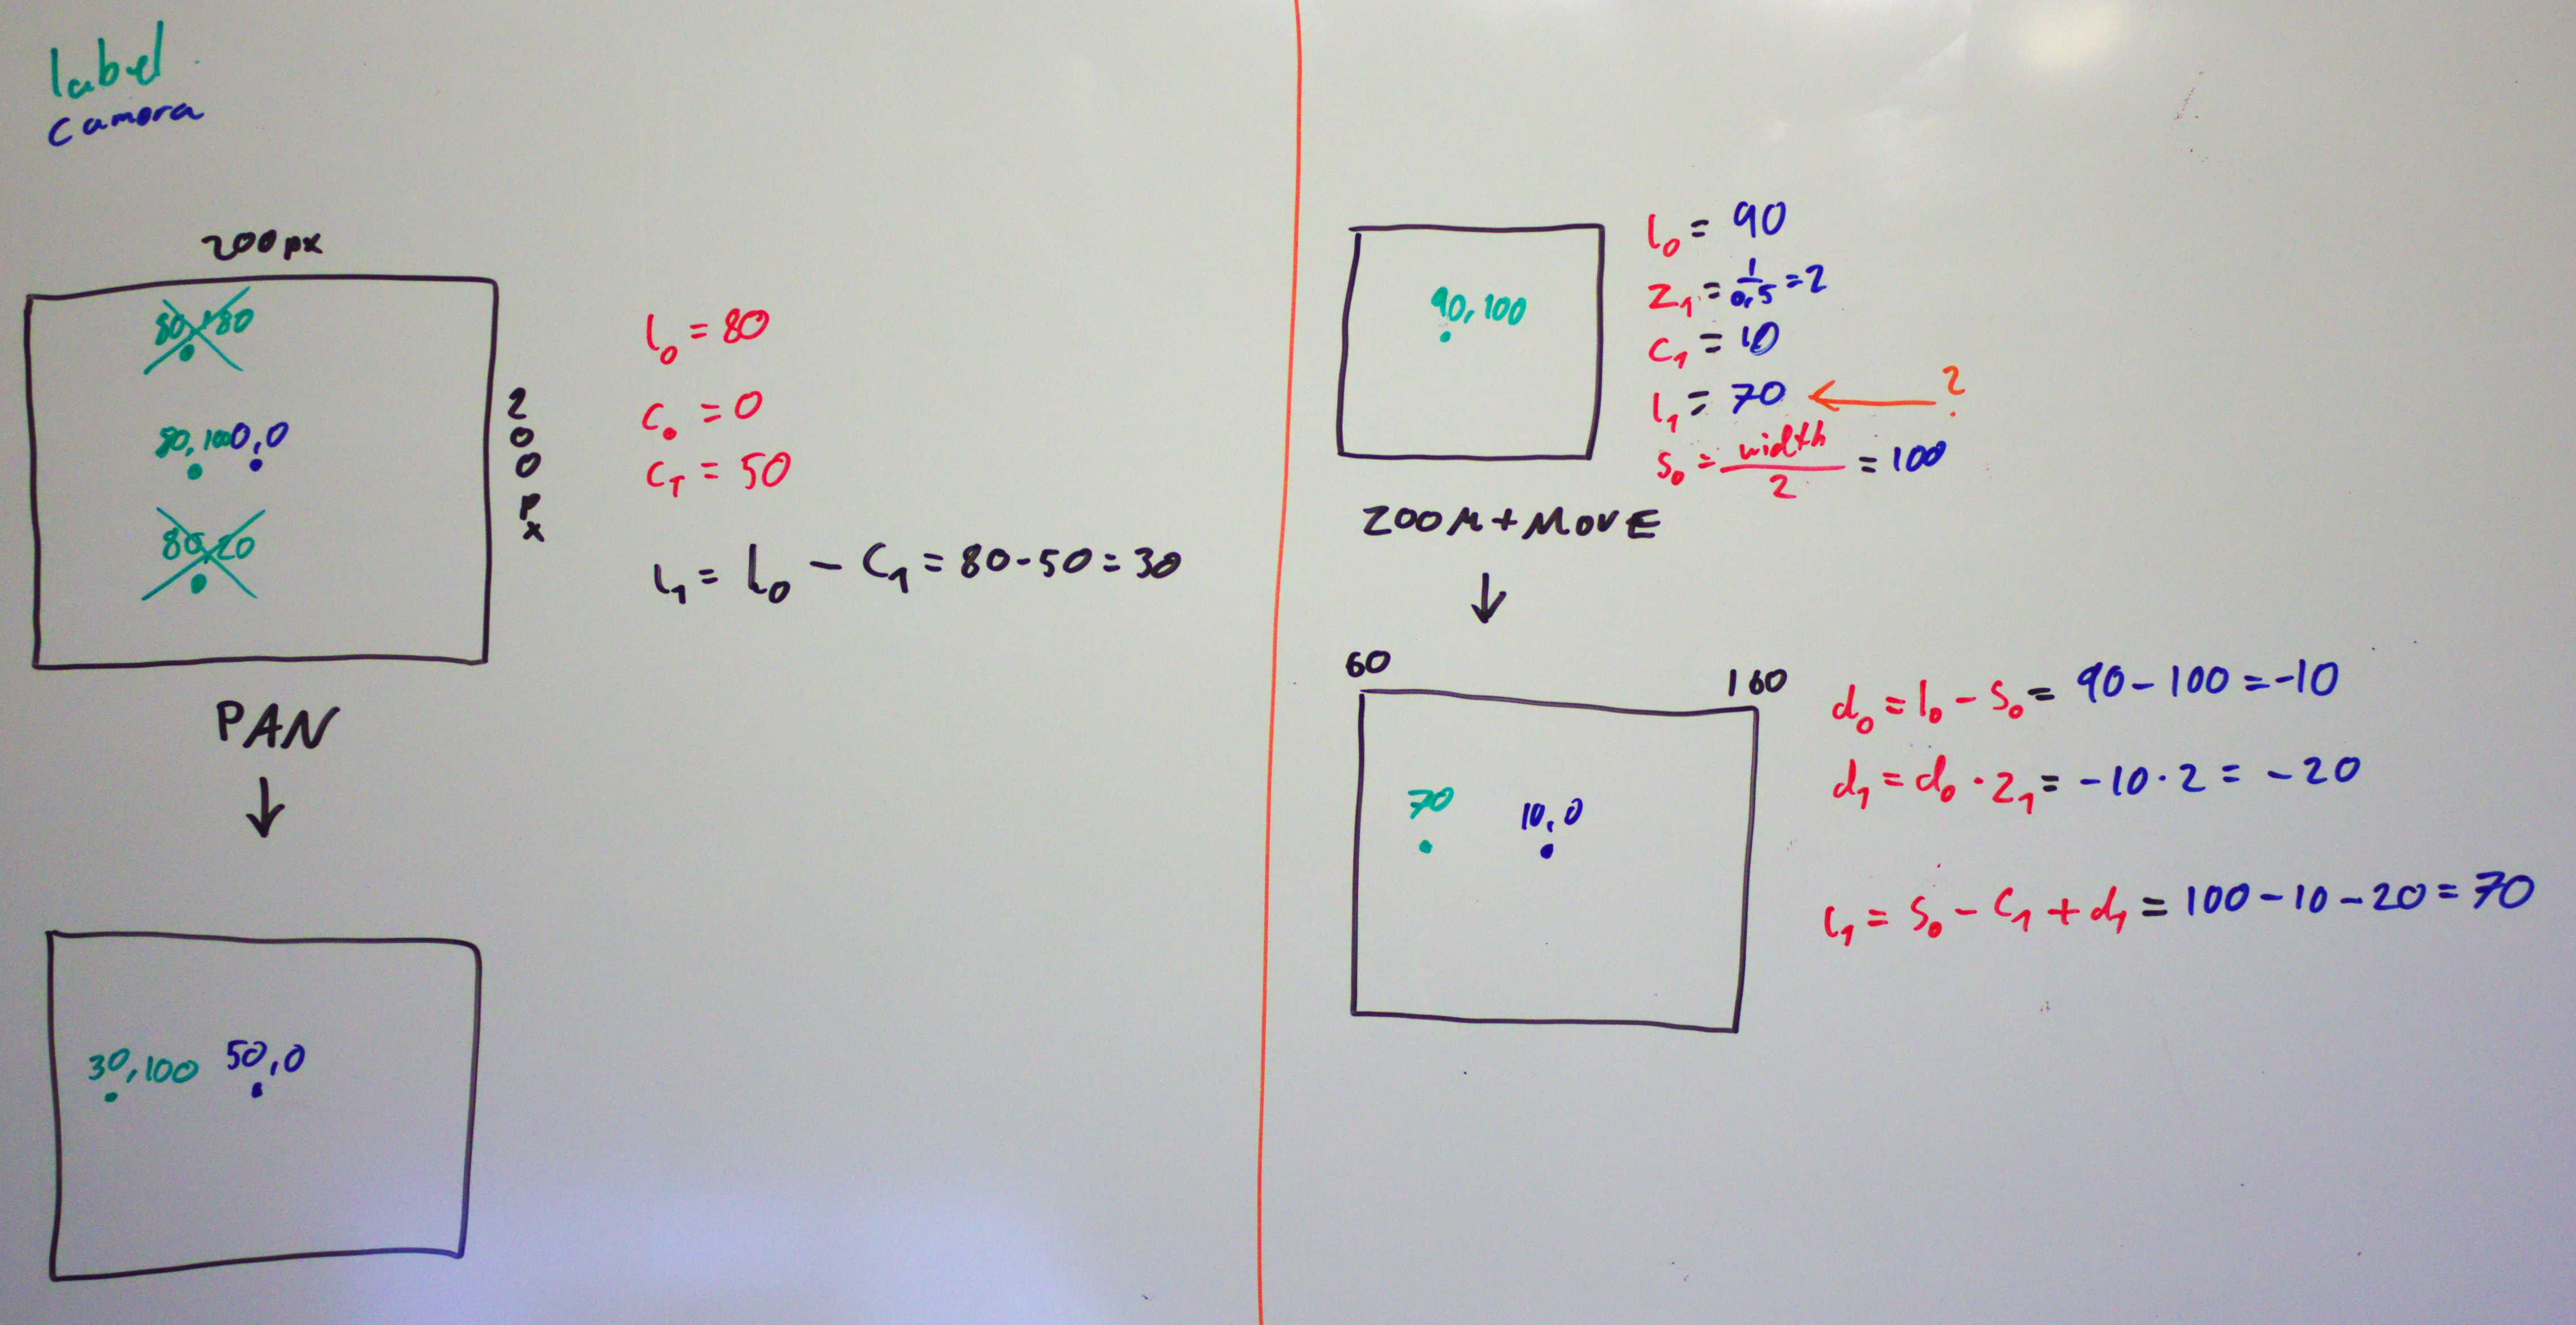 label
camera
200px
80,180
80,100
0,0
80,20
200px
PAN
↓
30,100
50,0
l₀ = 80
c₀ = 0
c₁ = 50
l₁ = l₀ - c₁ = 80-50 = 30
90,100
l₀ = 90
z₁ = 1/0,5 = 2
c₁ = 10
l₁ = 70 ← ?
s₀ = width/2 = 100
ZOOM + MOVE
↓
60
160
70
10,0
d₀ = l₀ - s₀ = 90 - 100 = -10
d₁ = d₀ · z₁ = -10 · 2 = -20
l₁ = s₀ - c₁ + d₁ = 100 - 10 - 20 = 70